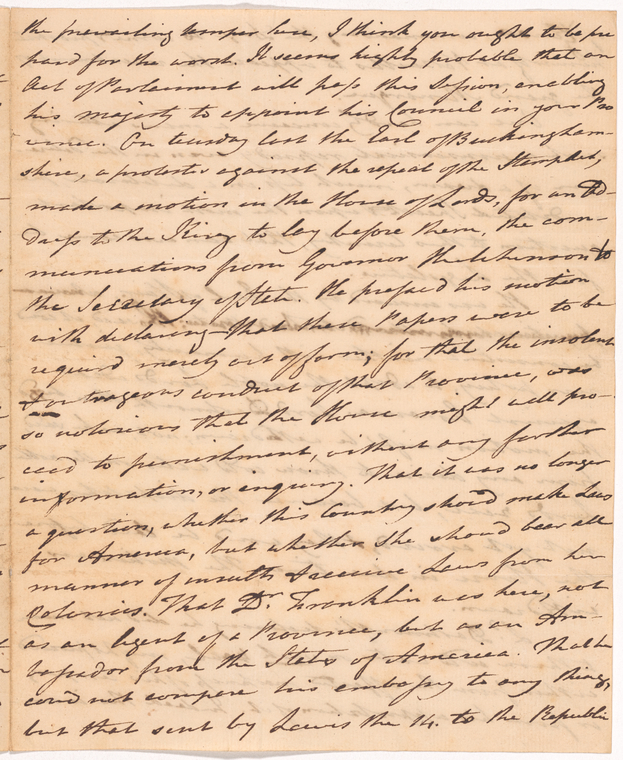 the prevailing temper here, I think you ought to be pre
pared for the worst. It seems highly probable that an
Act of Parliament will pass this Session, enabling
his majesty to appoint his Council in your Pro
vince. On tuesday last the Earl of Buckingham-
shire, a protestor against the repeal of the Stamp Act,
made a motion in the House of Lords, for an Ad-
dress to the King to lay before them, the com-
munications from Governor Hutchinson to
the Secretary of State. He prefaced his motion
with declaring—That these Papers were to be
requird merely out of form; for that the insolent
& outrageous conduct of that Province, was
so notorious that the House might well pro-
ceed to punishment, without any farther
information, or enquiry. That it was no longer
a question, whether this Country shoud make Laws
for America, but whether she shoud bear all
manner of insults & receive Laws from her
Colonies. That Dr. Franklin was here, not
as an Agent of a Province, but as an Am-
bassador from the States of America. That he
coud not compare his embassy to any thing,
but that sent by Lewis the 14. to the Republic